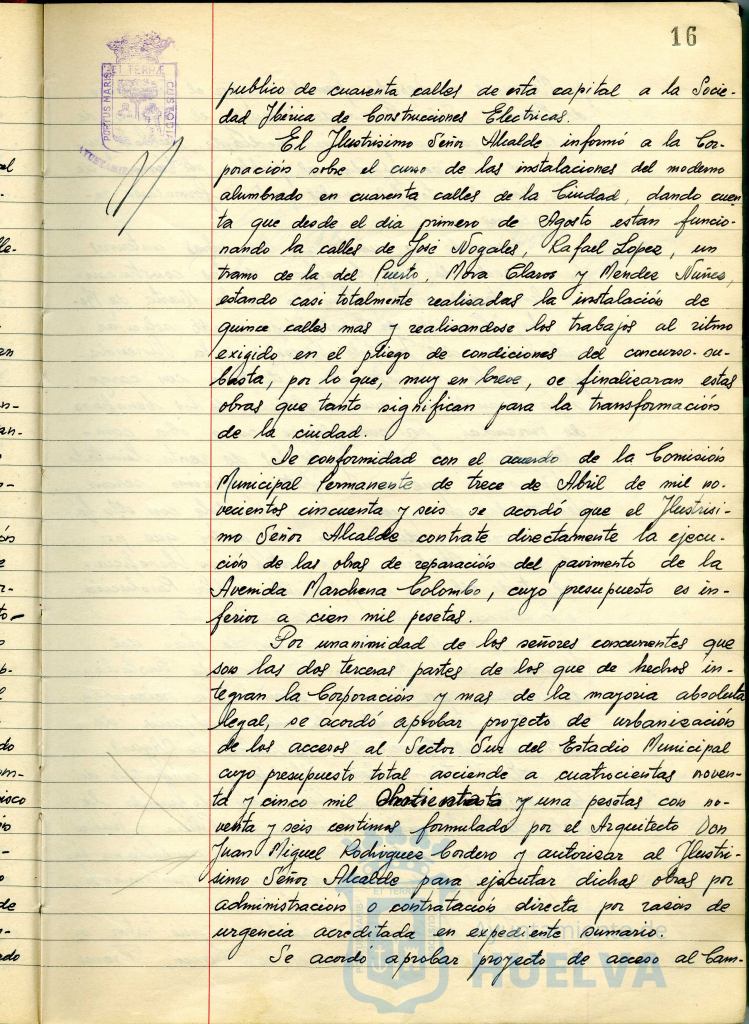 16
PORTUS MARIS
ET TERRÆ
CUSTODIA
publico de cuarenta calles de esta capital a la Socie-
dad Ibérica de Construcciones Electricas.
El Ilustrisimo Señor Alcalde, informó a la Cor-
poración sobre el curso de las instalaciones del moderno
alumbrado en cuarenta calles de la Ciudad, dando cuen
ta que desde el dia primero de Agosto estan funcio-
nando la calles de José Nogales, Rafael Lopez, un
tramo de la del Puerto, Mora Claros y Méndez Nuñez,
estando casi totalmente realizadas la instalación de
quince calles mas y realizandose los trabajos al ritmo
exigido en el pliego de condiciones del concurso-su-
basta, por lo que, muy en breve, se finalizaran estas
obras que tanto significan para la transformación
de la ciudad.
De conformidad con el acuerdo de la Comisión
Municipal Permanente de trece de Abril de mil no-
vecientos cincuenta y seis se acordó que el Ilustrisi-
mo Señor Alcalde contrate directamente la ejecu-
ción de las obras de reparación del pavimento de la
Avenida Marchena Colombo, cuyo presupuesto es in-
ferior a cien mil pesetas.
Por unanimidad de los señores concurrentes que
son las dos terceras partes de los que de hechos in-
tegran la Corporación y mas de la mayoria absoluta
legal, se acordó aprobar proyecto de urbanización
de los accesos al Sector Sur del Estadio Municipal
cuyo presupuesto total asciende a cuatrocientas noven-
ta y cinco mil y una pesetas con no-
venta y seis centimos formulado por el Arquitecto Don
Juan Miguel Rodriguez Cordero y autorizar al Ilustri-
simo Señor Alcalde para ejecutar dichas obras por
administracion o contratación directa por razón de
urgencia acreditada en expediente sumario.
Se acordó aprobar proyecto de acceso al Cam-
HUELVA